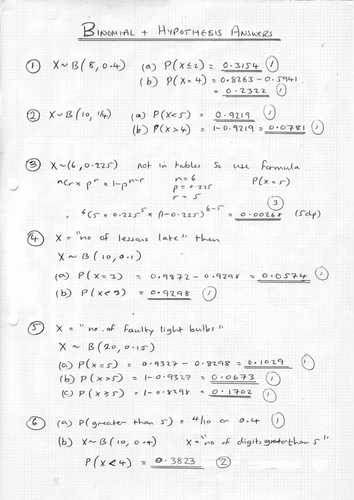 BINOMIAL + HYPOTHESIS ANSWERS
① X~B(8, 0.4) (a) P(X≤2) = 0.3154 ①
(b) P(X=4) = 0.8263 - 0.5941
= 0.2322 ①
② X~B(10, 1/4) (a) P(X<5) = 0.9219 ①
(b) P(X>4) = 1-0.9219 = 0.0781 ①
③ X~(6, 0.225) not in tables so use formula
nCr × p^r × 1-p^n-r n=6 P(X=5)
p=0.225
r=5 ③
= ⁶C5 × 0.225⁵ × (1-0.225)^6-5 = 0.00268 (5dp)
④ X = "no of lessons late" then
X~B(10, 0.1)
(a) P(X=3) = 0.9872 - 0.9298 = 0.0574 ①
(b) P(X<3) = 0.9298 ①
⑤ X = "no. of faulty light bulbs"
X ~ B(20, 0.15)
(a) P(X=5) = 0.9327 - 0.8298 = 0.1029 ①
(b) P(X>5) = 1-0.9327 = 0.0673 ①
(c) P(X≥5) = 1-0.8298 = 0.1702 ①
⑥ (a) P(greater than 5) = 4/10 or 0.4 ①
(b) X~B(10, 0.4) X = "no of digits greater than 5"
P(X<4) = 0.3823 ②